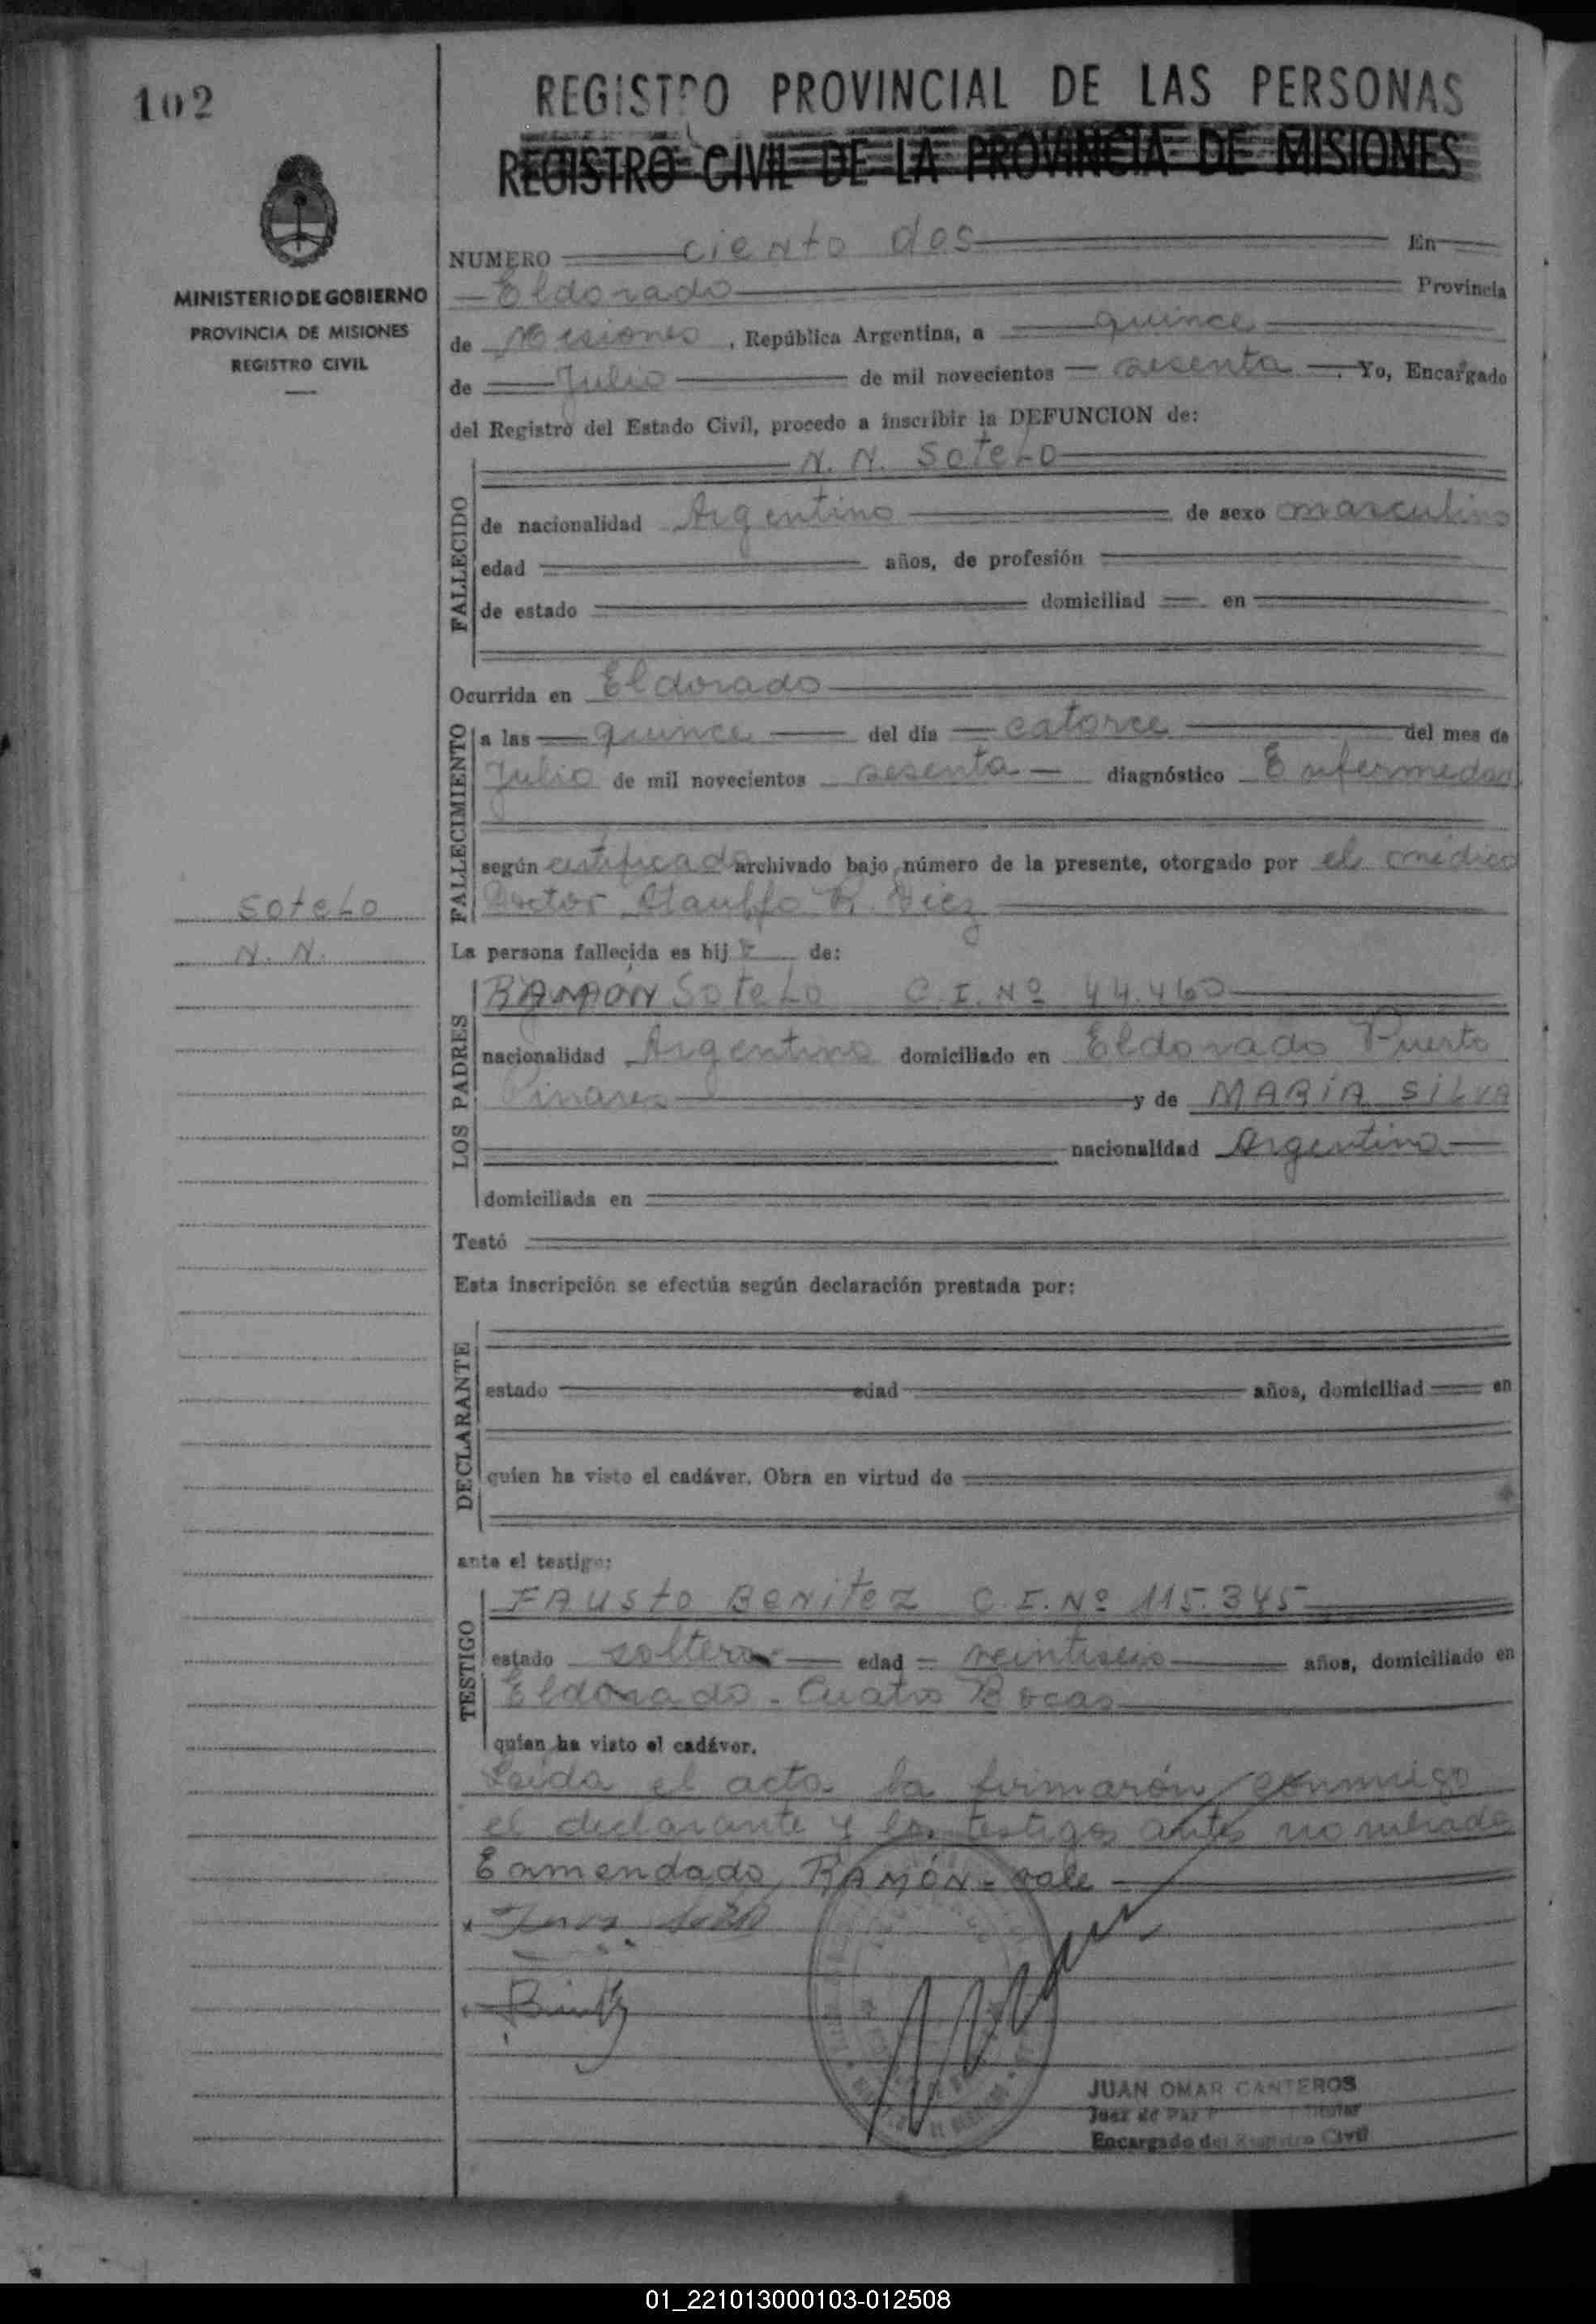 102
REGISTRO PROVINCIAL DE LAS PERSONAS
REGISTRO CIVIL DE LA PROVINCIA DE MISIONES
MINISTERIO DE GOBIERNO
PROVINCIA DE MISIONES
REGISTRO CIVIL
NUMERO ciento dos En
Eldorado Provincia
de Misiones, República Argentina, a quince
de Julio de mil novecientos sesenta. Yo, Encargado
del Registro del Estado Civil, procedo a inscribir la DEFUNCION de:
N. N. SoteLo
FALLECIDO
de nacionalidad Argentino de sexo masculino
edad años, de profesión
de estado domiciliad en
Ocurrida en Eldorado
FALLECIMIENTO
a las quince del día catorce del mes de
Julio de mil novecientos sesenta diagnóstico Enfermedad
según certificado archivado bajo número de la presente, otorgado por el médico
Doctor R. Diez
SoteLo
N. N.
La persona fallecida es hij de:
LOS PADRES
RAMÓN SoteLo C. I. Nº 44.460
nacionalidad Argentina domiciliado en Eldorado Puerto
Pinares y de MARIA SiLVA
nacionalidad Argentina
domiciliada en
Testó
Esta inscripción se efectúa según declaración prestada por:
DECLARANTE
estado edad años, domiciliad en
quien ha visto el cadáver. Obra en virtud de
ante el testigo:
TESTIGO
FAUSto BeNiteZ C. I. Nº 115.345
estado soltero edad veintiseis años, domiciliado en
Eldorado - Cuatro Bocas
quien ha visto el cadáver.
Leida el acta la firmarón conmigo
el declarante y los testigos antes nombrado
Enmendado RAMÓN - vale
JUAN OMAR CANTEROS
Juez de Paz Titular
Encargado del Registro Civil
01_221013000103-012508